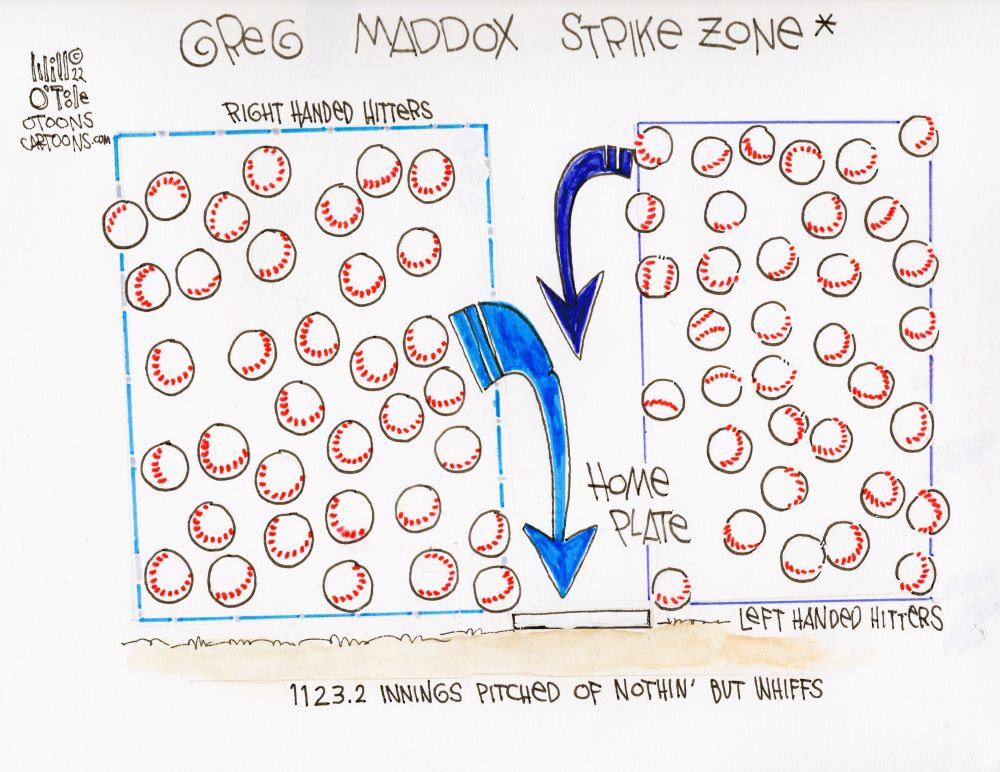 GREG MADDOX STRIKE ZONE*
Will ©
22
O'Toole
OTOONS
CARTOONS.com
RIGHT HANDED HITTERS
HOME
PLATE
LEFT HANDED HITTERS
1123.2 INNINGS PITCHED OF NOTHIN' BUT WHIFFS